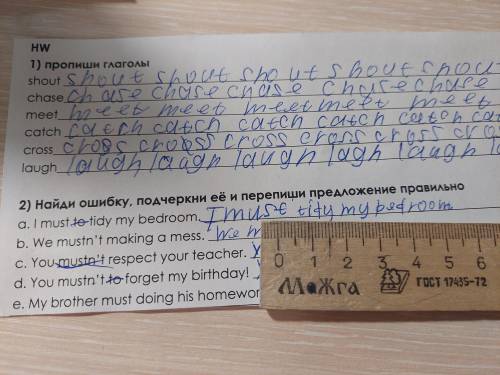 HW
1) пропиши глаголы
shout shout shout shout shout shout
chase chase chase chase chase chase
meet meet meet meet meet meet
catch catch catch catch catch catch
cross cross cross cross cross cross cross
laugh laugh laugh laugh lagh laugh
2) Найди ошибку, подчеркни её и перепиши предложение правильно
a. I must to tidy my bedroom. I must tidy my bedroom
b. We mustn't making a mess. We
c. You mustn't respect your teacher.
d. You mustn't to forget my birthday!
e. My brother must doing his homewor
0 1 2 3 4 5 6
МоЖга ГОСТ 17435-72